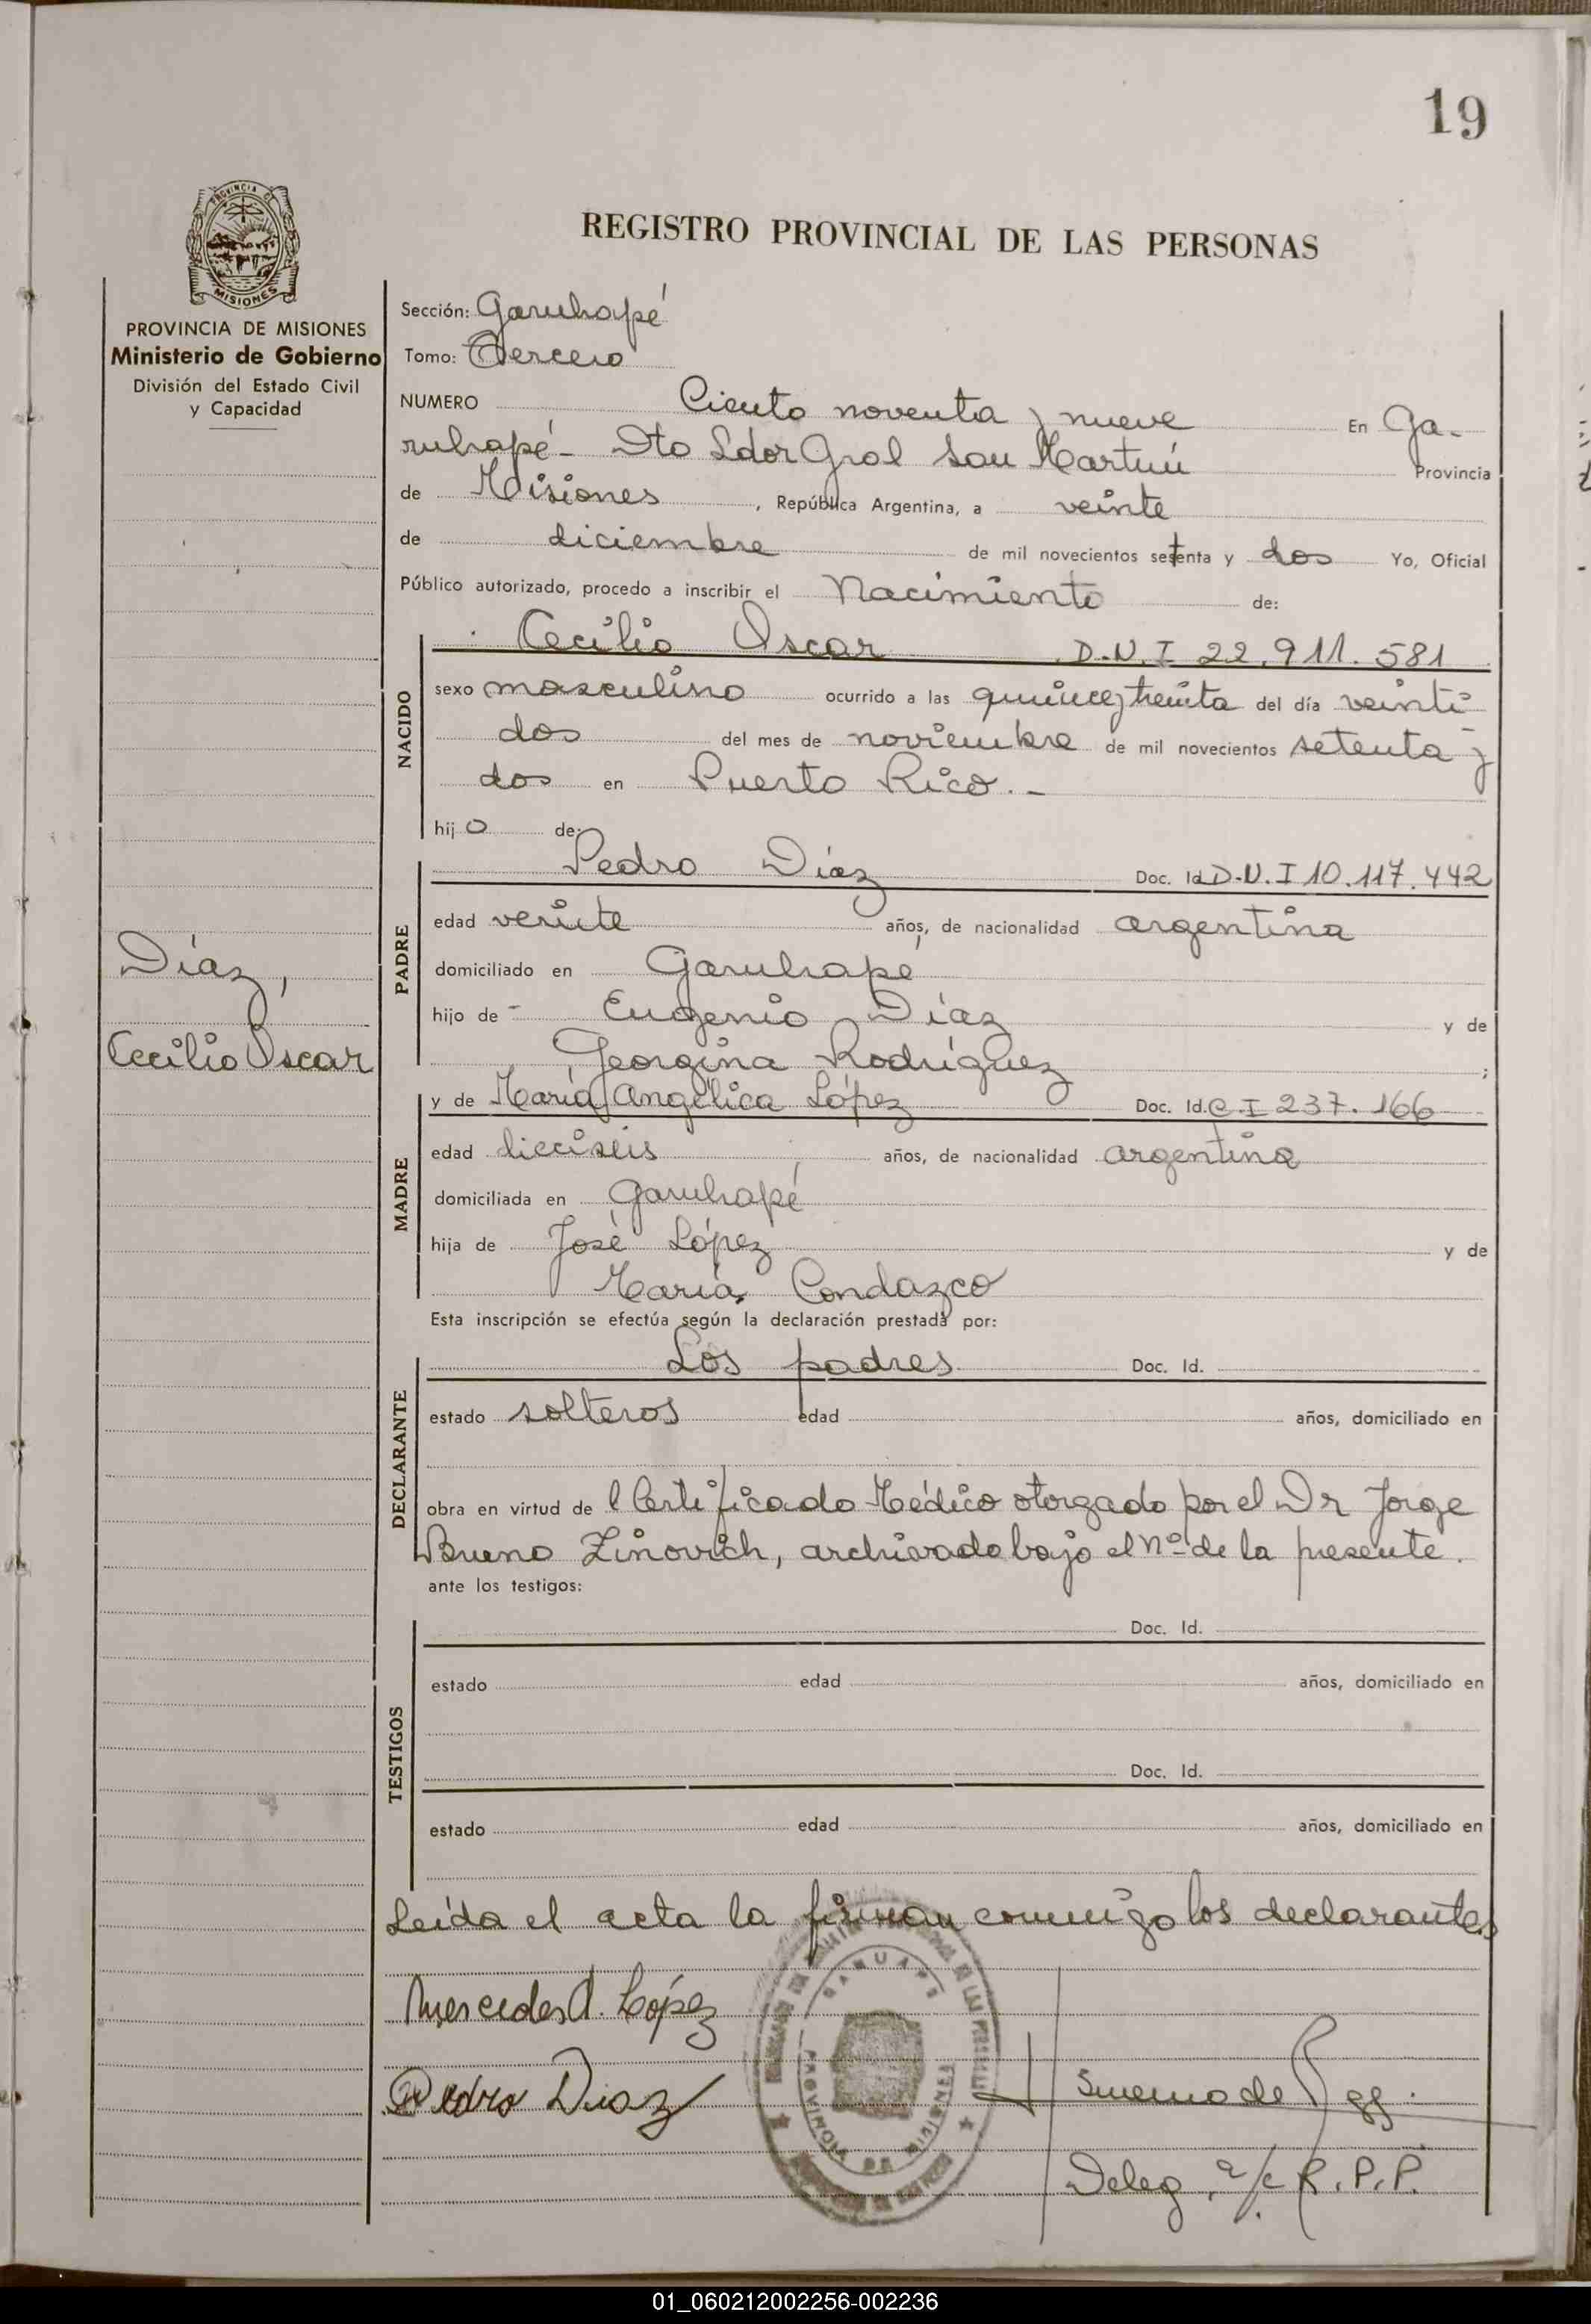 19
PROVINCIA DE MISIONES
REGISTRO PROVINCIAL DE LAS PERSONAS
PROVINCIA DE MISIONES
Ministerio de Gobierno
División del Estado Civil
y Capacidad
Díaz,
Cecilio Oscar
Sección: Garuhapé
Tomo: Tercero
NUMERO Ciento noventa y nueve En Ga-
ruhapé - Dto Ldor Gral San Martín Provincia
de Misiones, República Argentina, a veinte
de diciembre de mil novecientos setenta y dos Yo, Oficial
Público autorizado, procedo a inscribir el Nacimiento de:
NACIDO
Cecilio Oscar D.N.I 22.911.581
sexo masculino ocurrido a las quince y treinta del día veinti
dos del mes de noviembre de mil novecientos setenta y
dos en Puerto Rico.-
hijo de:
PADRE
Pedro Díaz Doc. Id D.N.I 10.117.442
edad veinte años, de nacionalidad argentina
domiciliado en Garuhapé
hijo de - Eugenio Díaz y de
Georgina Rodríguez;
MADRE
y de María Angélica López Doc. Id. C.I 237.166
edad dieciseis años, de nacionalidad argentina
domiciliada en Garuhapé
hija de José López y de
María Condazco
Esta inscripción se efectúa según la declaración prestada por:
DECLARANTE
Los padres Doc. Id.
estado solteros edad años, domiciliado en
obra en virtud de l Certificado Médico otorgado por el Dr Jorge
Bueno Zinovich, archivado bajo el Nº de la presente.
ante los testigos:
TESTIGOS
Doc. Id.
estado edad años, domiciliado en
Doc. Id.
estado edad años, domiciliado en
Leída el acta la firman conmigo los declarantes
Mercedes A. López
Pedro Diaz
PROVINCIA DE MISIONES
Deleg. a/c R.P.P.
01_060212002256-002236